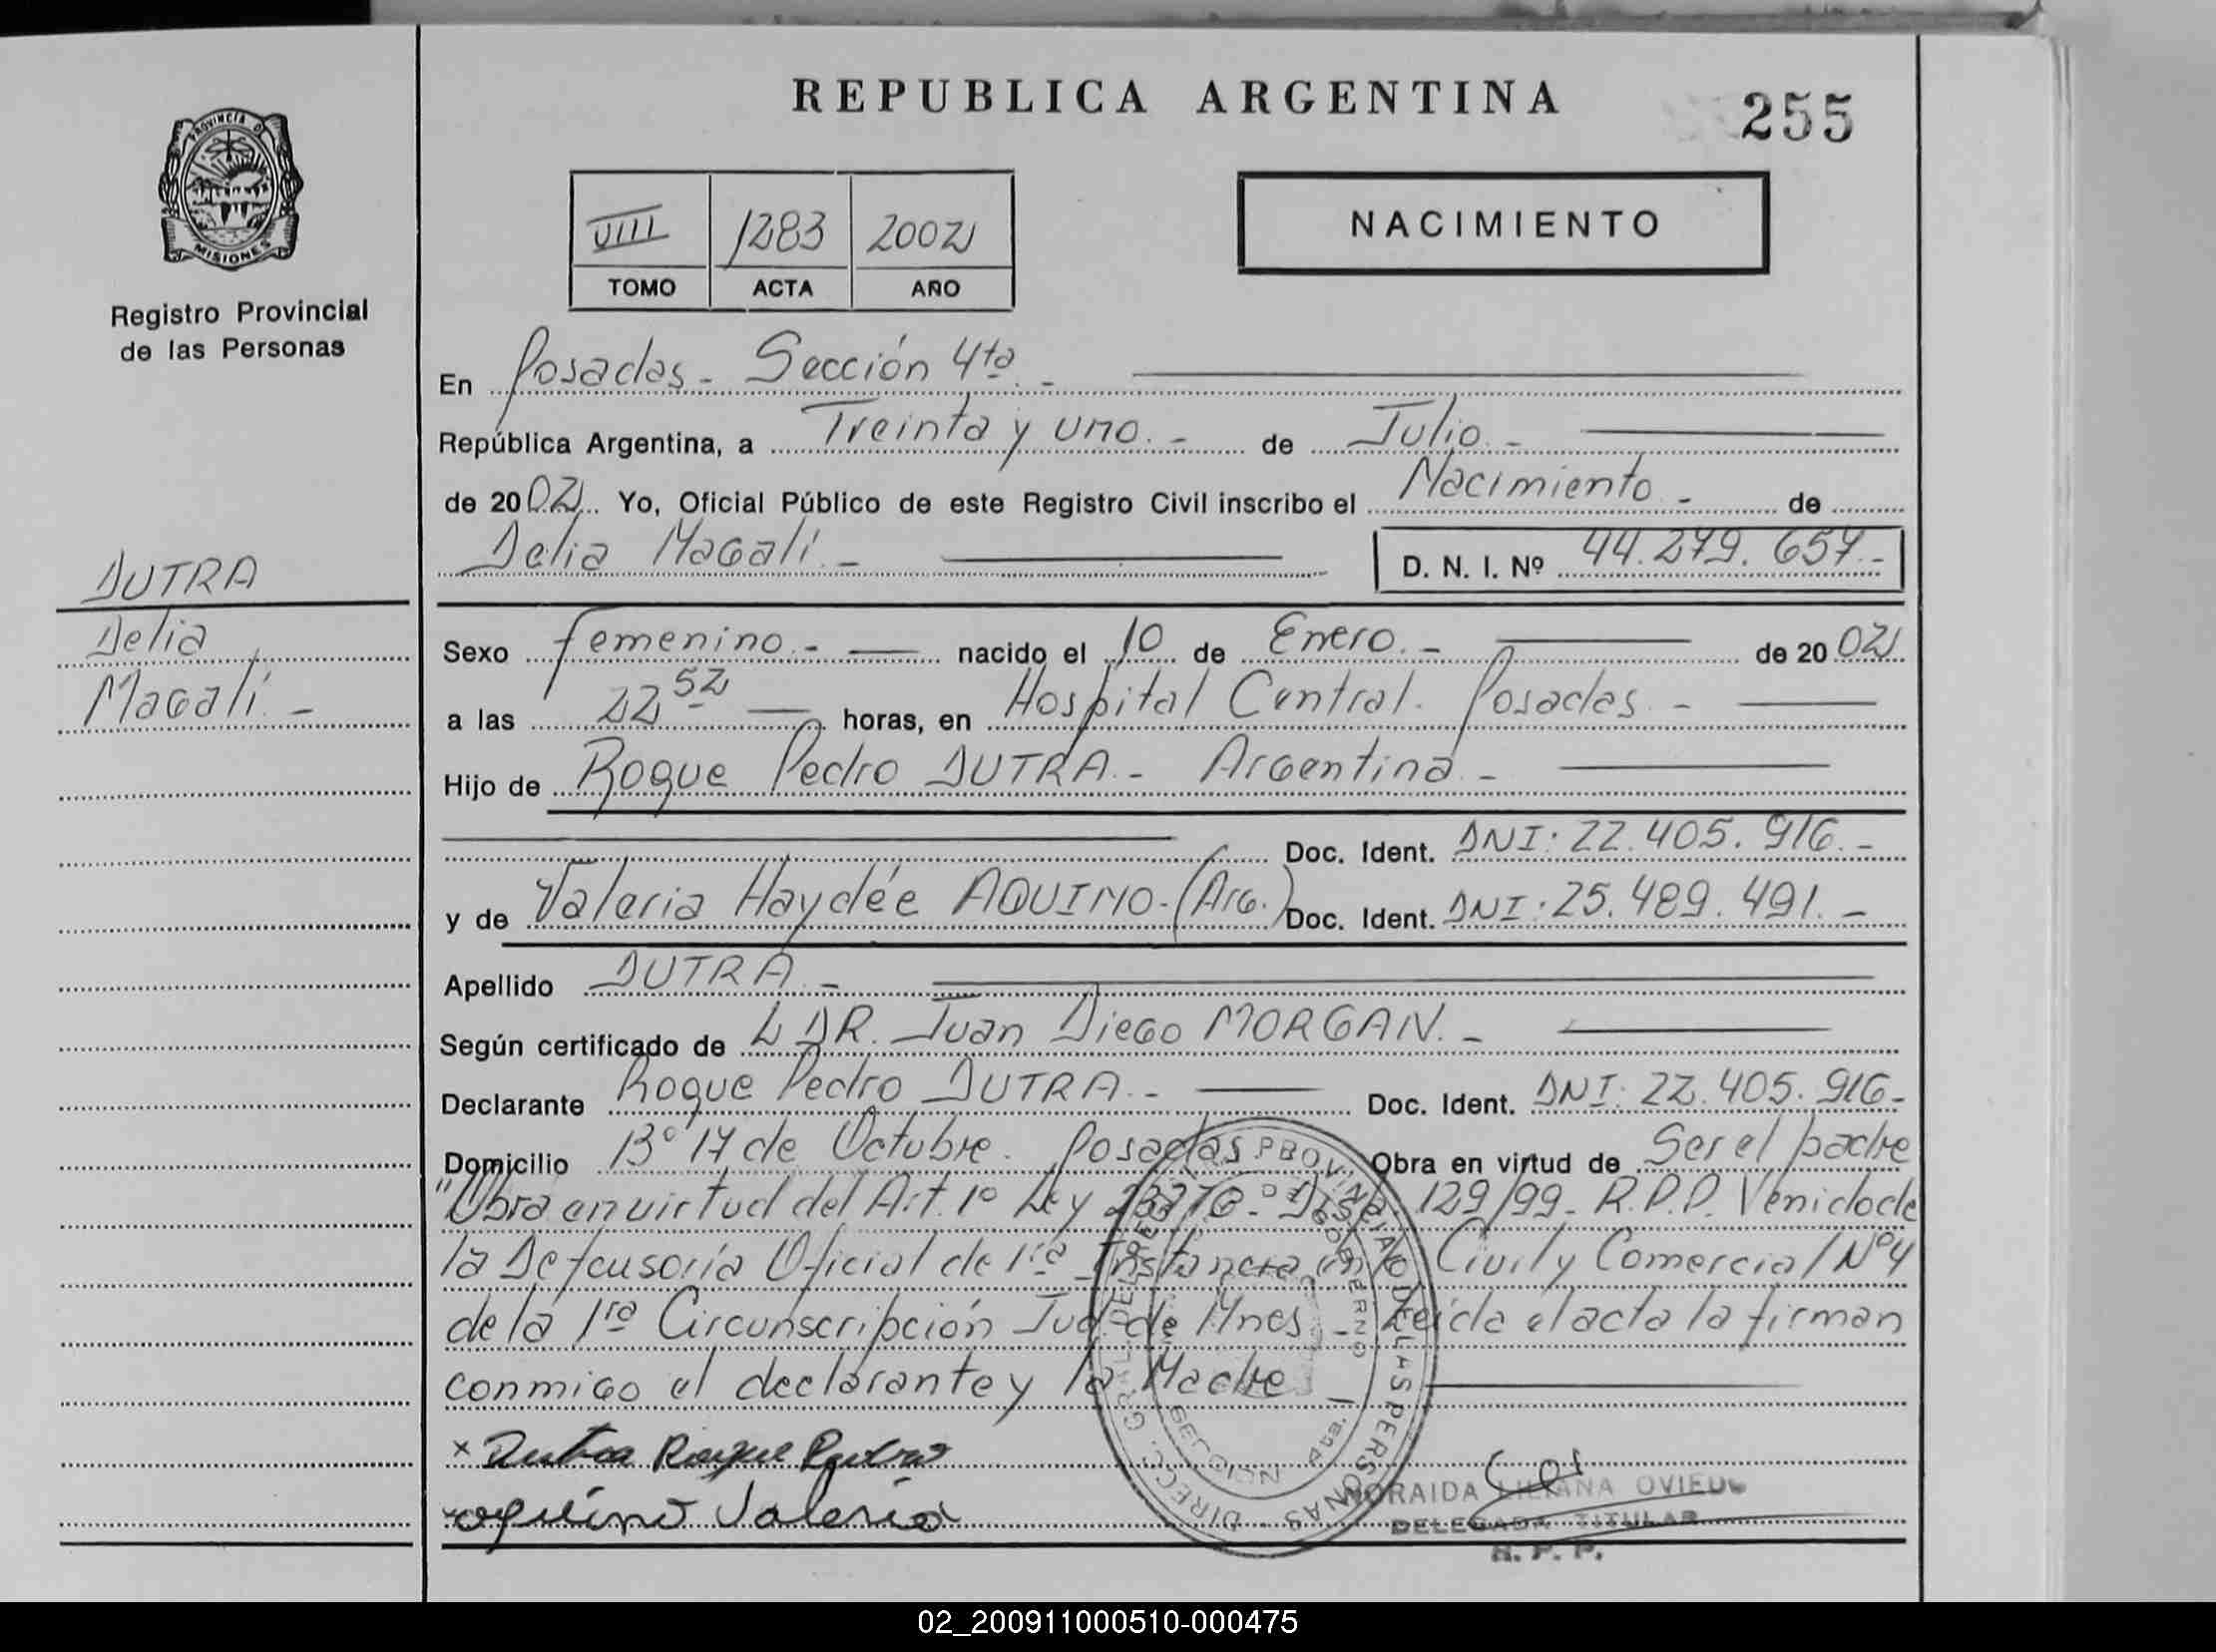 REPUBLICA ARGENTINA
255
PROVINCIA DE
MISIONES
Registro Provincial
de las Personas
VIII 1283 2002
TOMO ACTA AÑO
NACIMIENTO
En Posadas - Sección 4ta. -
República Argentina, a Treinta y uno. - de Julio. -
de 2002 Yo, Oficial Público de este Registro Civil inscribo el Nacimiento - de
Delia Magalí. - D. N. I. Nº 44.279.657.-
DUTRA
Delia
Magalí. -
Sexo femenino. - nacido el 10 de Enero. - de 2002
a las 22 52 horas, en Hospital Central. Posadas. -
Hijo de Roque Pedro DUTRA. - Argentina. -
Doc. Ident. DNI: 22.405.916. -
y de Valeria Haydée AQUINO. (Arg.) Doc. Ident. DNI: 25.489.491. -
Apellido DUTRA. -
Según certificado de L DR. Juan Diego MORGAN. -
Declarante Roque Pedro DUTRA. - Doc. Ident. DNI: 22.405.916-
Domicilio Bº 17 de Octubre. Posadas Obra en virtud de Ser el padre
"Obra en virtud del Art. 1º Ley - Disp. 129/99 - R.P.P. Venido de
la Defensoría Oficial de 1ra Instancia en lo Civil y Comercial Nº 4
de la 1ra Circunscripción Jud. de Mnes - Leída el acta la firman
conmigo el declarante y la Madre
x Dutra Roque Pedro
aquino Valeria
DIRECC. GRAL. DEL REGISTRO PROVINCIAL DE LAS PERSONAS
GOBIERNO
SECCION 4ta.
NORAIDA LILIANA OVIEDO
DELEGADA TITULAR
R. P. P.
02_200911000510-000475